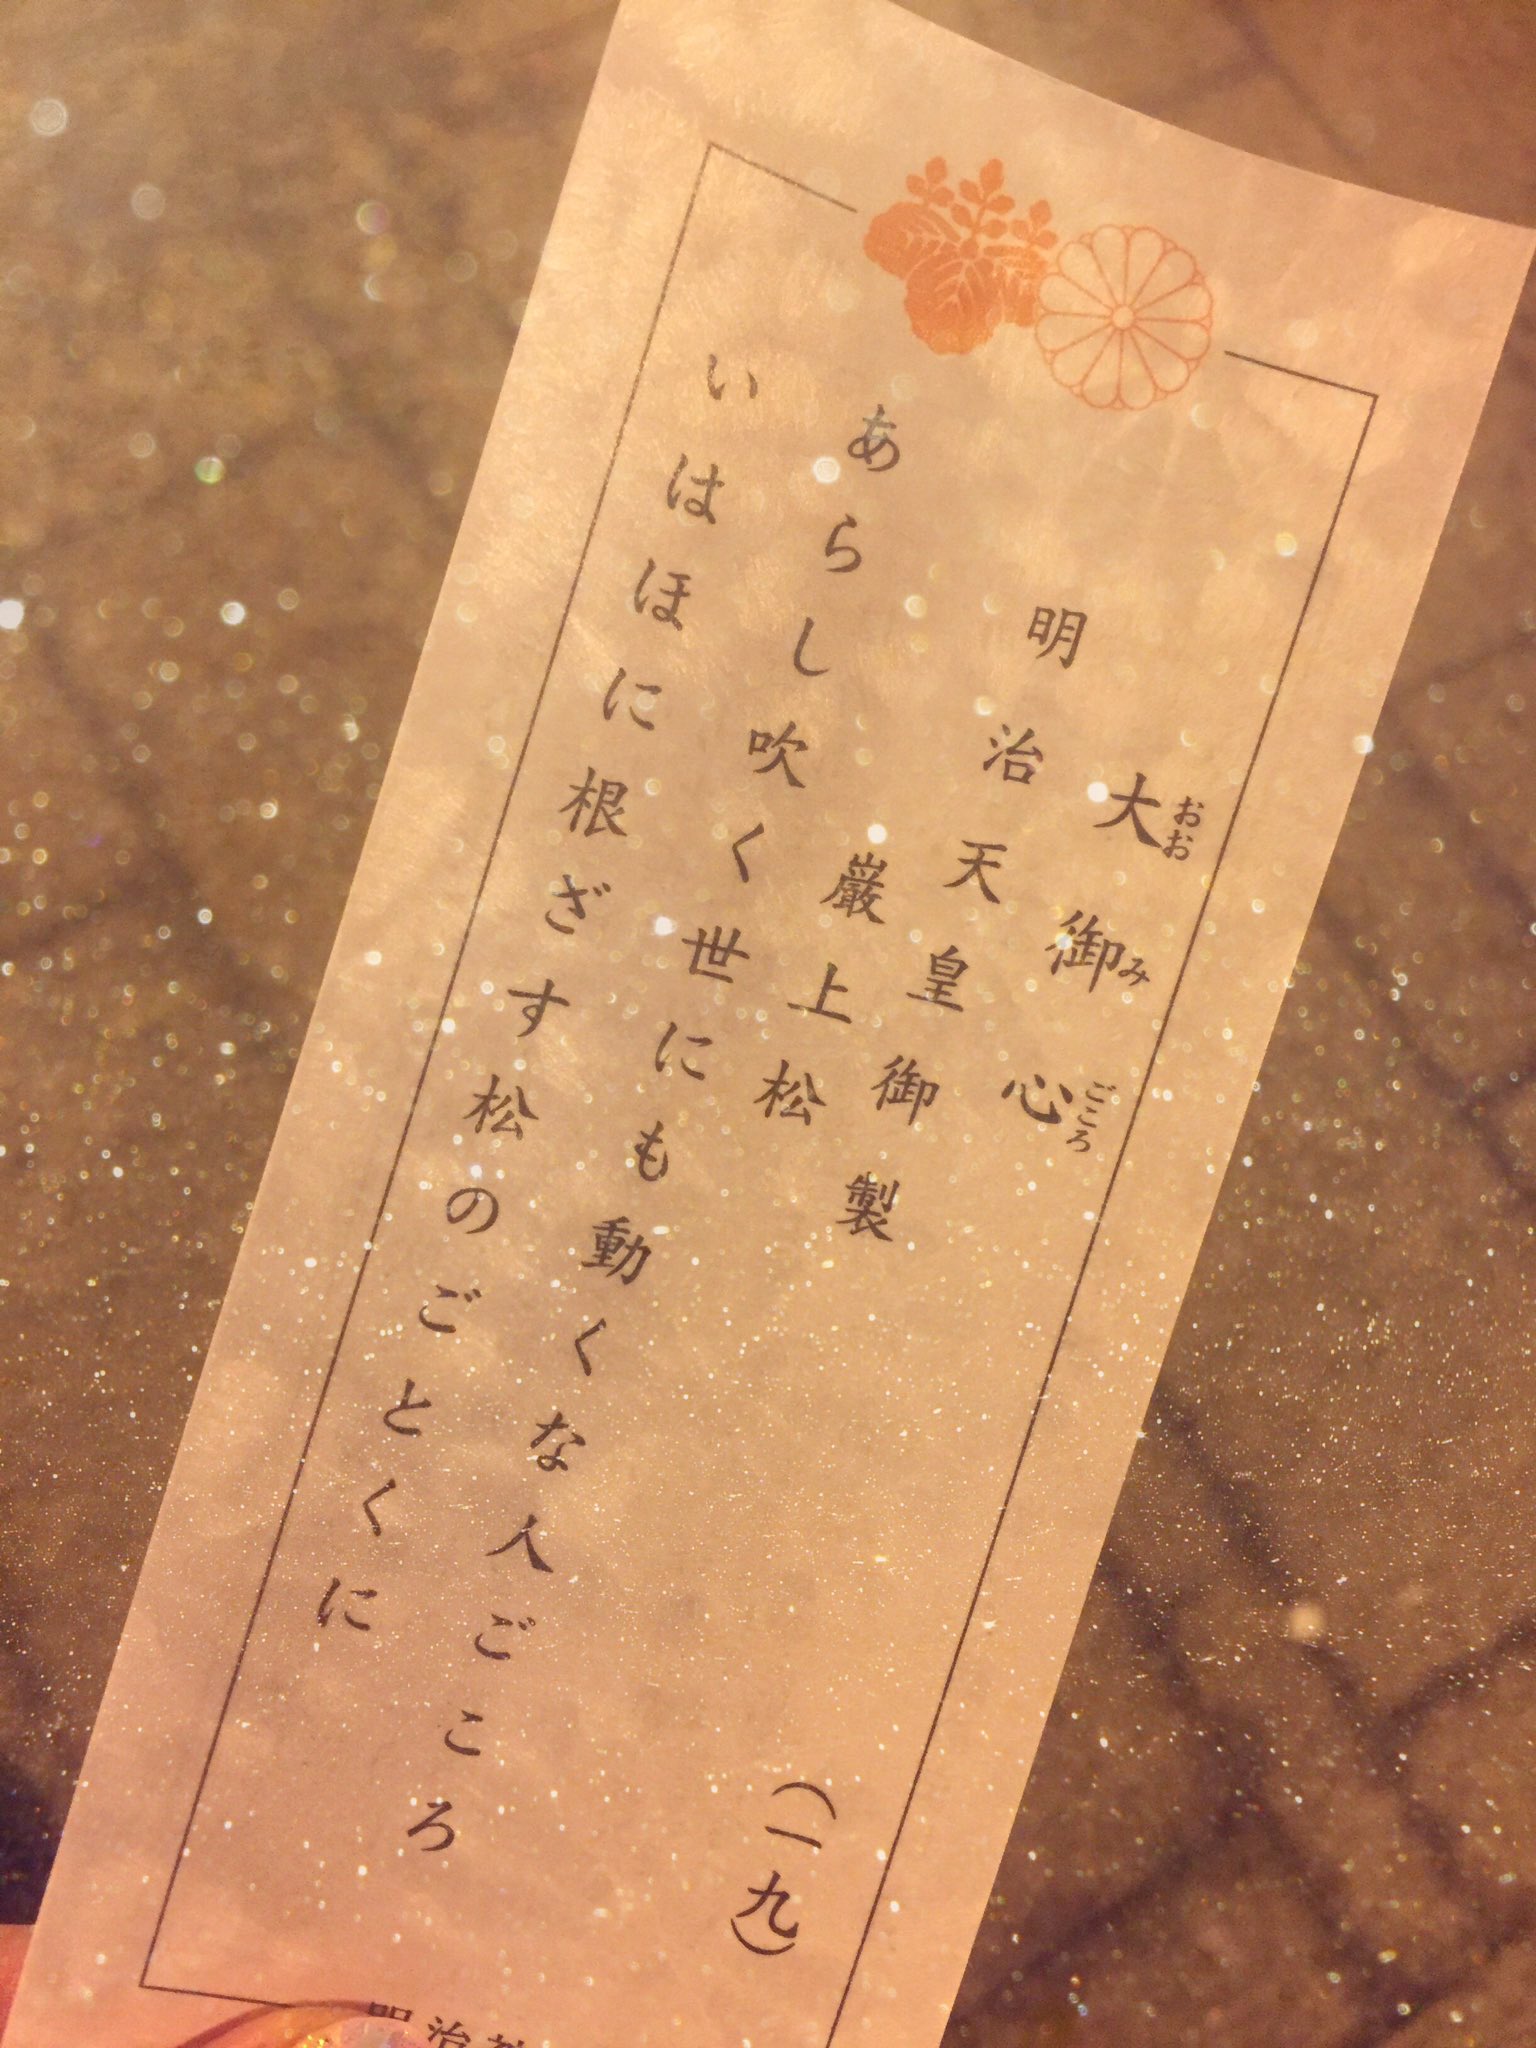 大御心
おおみごころ
明治天皇御製
巌上松
(一九)
あらし吹く世にも動くな人ごころ
いはほに根ざす松のごとくに
明治神